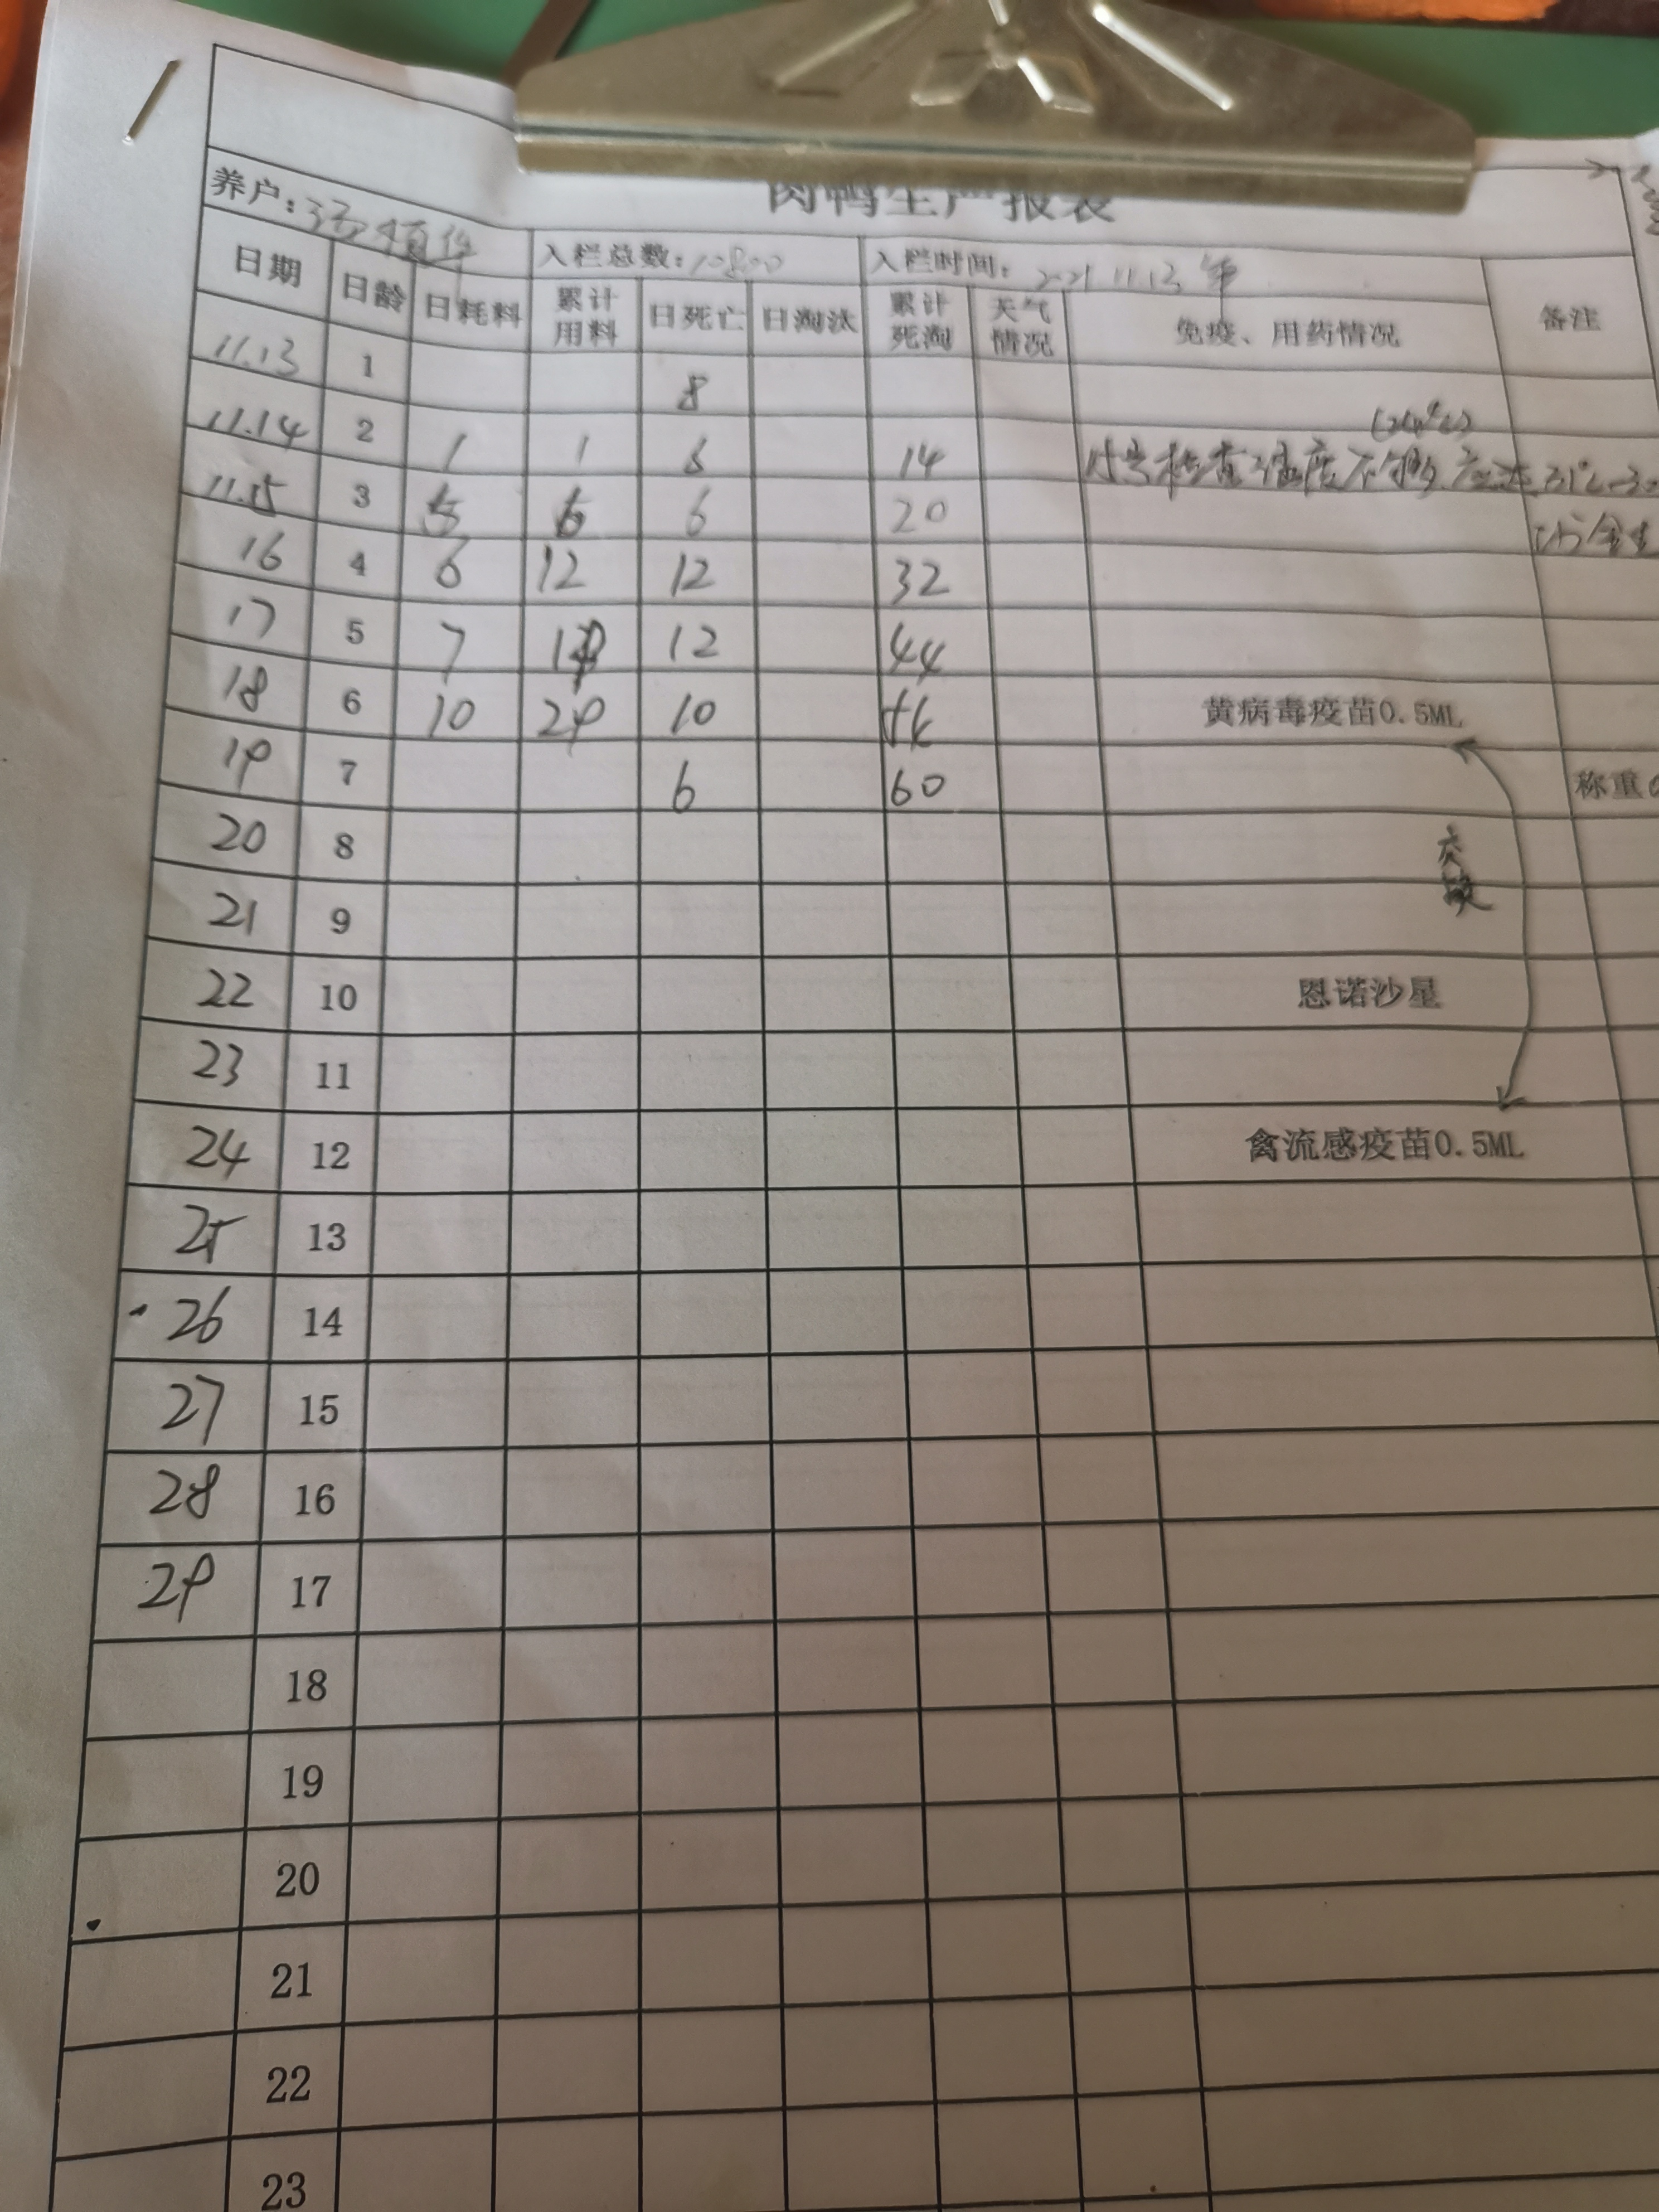 肉鸭生产报表
养户:
入栏总数:10800 入栏时间: 2021 11.13
日期 日龄 日耗料 累计用料 日死亡 日淘汰 累计死淘 天气情况 免疫、用药情况 备注
11.13 1 8
11.14 2 1 1 6 14
11.15 3 5 6 6 20
16 4 6 12 12 32
17 5 7 19 12 44
18 6 10 29 10 黄病毒疫苗0.5ML
19 7 6 60 称重
20 8
21 9
22 10 恩诺沙星
23 11
24 12 禽流感疫苗0.5ML
25 13
26 14
27 15
28 16
29 17
18
19
20
21
22
23